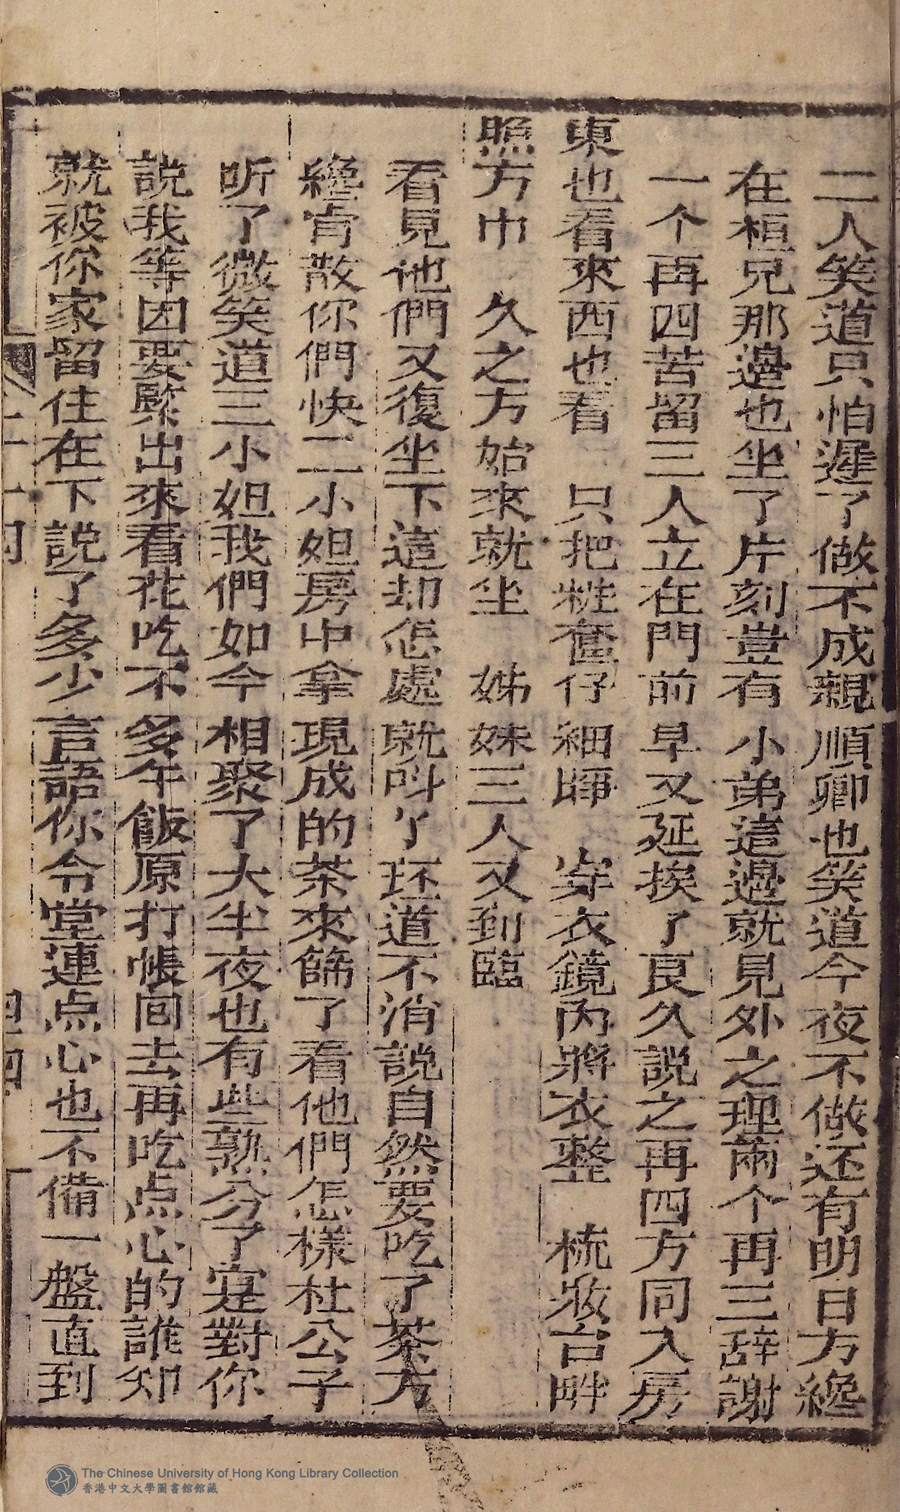 二人笑道只怕遲了做不成親順卿也笑道今夜不做还有明日方纔
在桓兄那邉也坐了片刻豈有小弟這邉就見外之理兩个再三辞謝
一个再四苦留三人立在門前早又延挨了良久説之再四方同入房
東也看來西也看　只把粧奩仔細睜　穿衣鏡內將衣整　梳妝台畔
照方巾　久之方始來就坐　姊妹三人又到臨
看見他們又復坐下這却怎處就呌丫环道不消説自然要吃了茶方
纔肯散你們快二小姐房中拿現成的茶來篩了看他們怎樣杜公子
听了微笑道三小姐我們如今相聚了大半夜也有些熟分了寔對你
説我等因要緊出來看花吃不多午飯原打帳囬去再吃点心的誰知
就被你家留住在下説了多少言語你令堂連点心也不備一盤直到
四四
The Chinese University of Hong Kong Library Collection
香港中文大學圖書館館藏